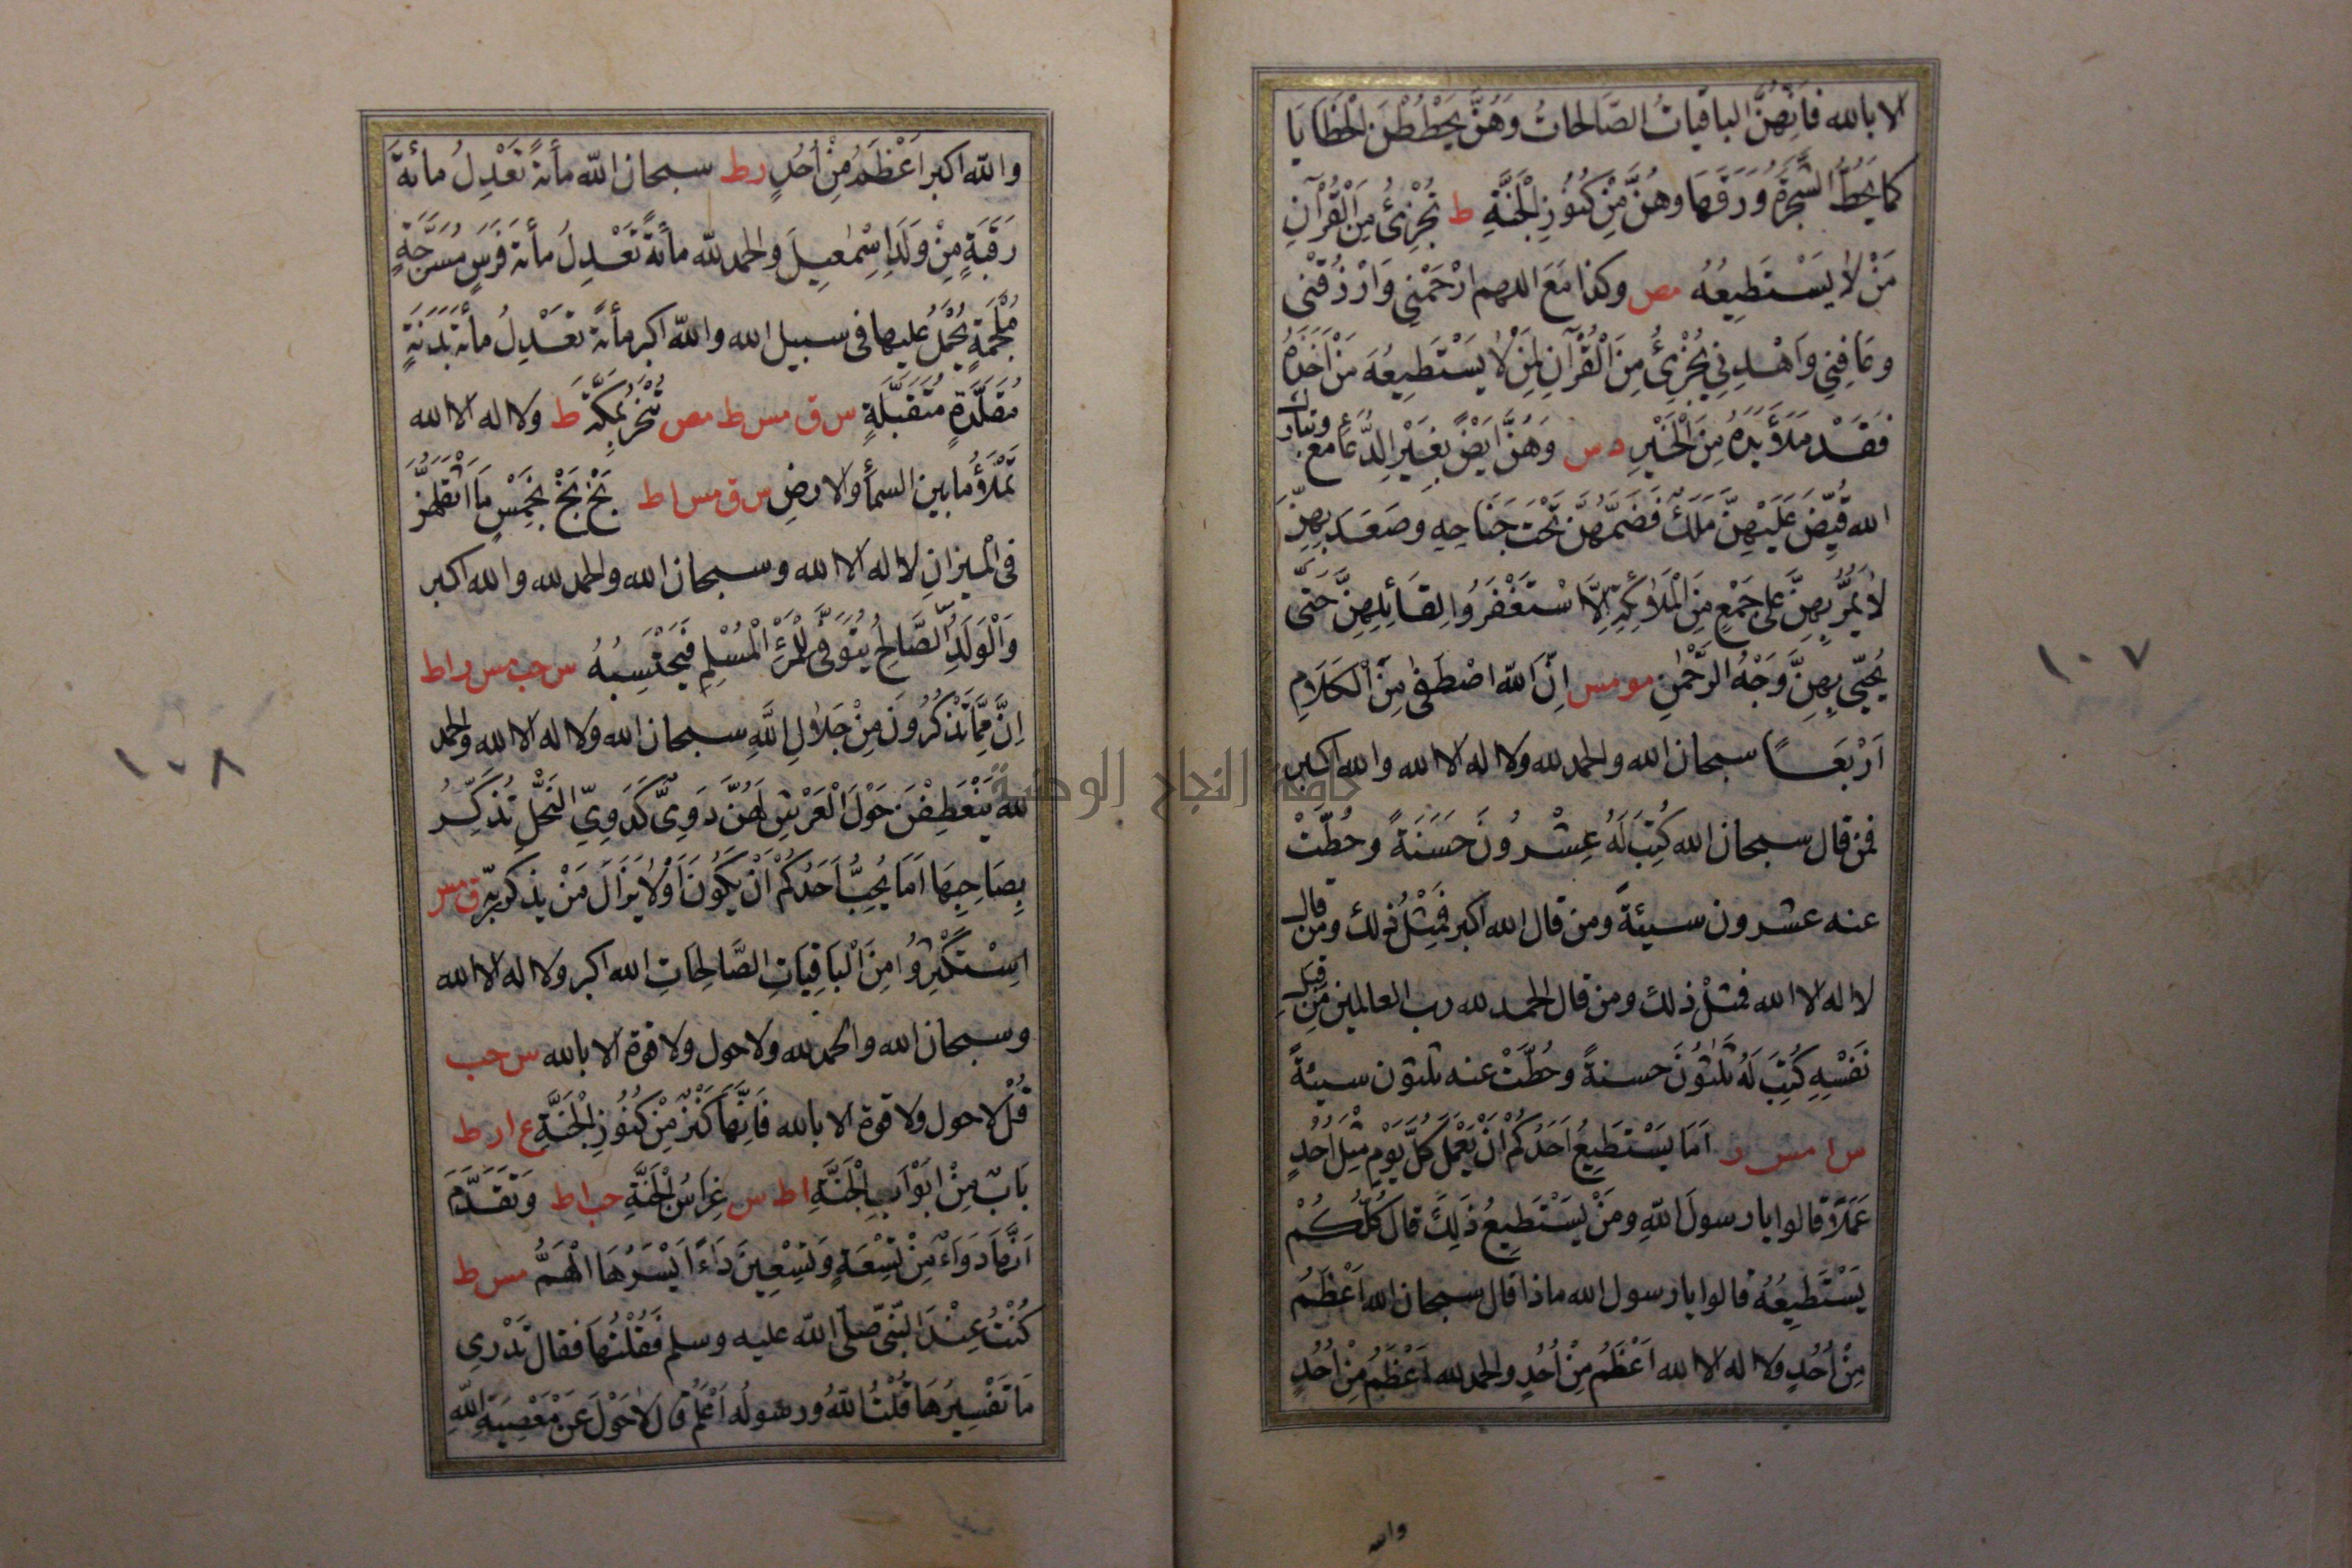 الا بالله فَاِنَّهُنَّ الباقيَاتُ الصَّالحَاتُ وَهُنَّ يَحْطُطْنَ الْخَطَايَا
كما يَحُطُّ الشَّجَرَةُ وَرَقَهَا وهُنَّ مِنْ كُنُوزِ الْجَنَّةِ ط تُجْزِئُ مِنَ الْقُرْآنِ
مَنْ لاٰ يَسْتَطِيعُهُ مص وكذا مَعَ اللهم ارْحَمْنِي وَارْزُقْنِي
وعَافِنِي وَاهْدِنِي يُجْزِئُ مِنَ الْقُرْآنِ لِمَنْ لاٰ يَسْتَطِيعُهُ مَنْ اَخَذَهُ
فَقَدْ مَلَأَ يَدَهُ مِنَ الْخَيْرِ د س وَهُنَّ اَيْضً بِغَيْرِ الدُّعَاءِ مع وتبارك
الله قُيِّضَ عَلَيْهِنَّ مَلَكٌ فَضَمَّهُنَّ تَحْتَ جَنَاحِهِ وصَعَدَ بِهِنَّ
لاٰ يَمُرُّ بِهِنَّ عَلى جَمْعٍ مِنَ الْمَلاٰئِكَةِ اِلَّا اسْتَغْفَرُوا لِقَائِلِهِنَّ حَتّى
يُحَيّى بِهِنَّ وَجْهُ الرَّحْمٰنِ مو مس اِنَّ اللّٰه اصْطَفٰى مِنَ الْكَلَامِ
اَرْبَعًا سبحان الله والحمد لله ولا اله الا الله والله اكبر
فمن قال سبحان الله كُتِبَ لَهُ عِشْرُونَ حَسَنَةً وحُطَّتْ
عنه عشرون سيئةً ومن قال الله اكبر فَمِثْلُ ذلك ومن قال
لا اله الا الله فمثلْ ذلك ومن قال الحمد لله رب العالمين مِن قِبَلِ
نَفْسِهِ كُتِبَ لَهُ ثلٰثُونَ حسنةً وحُطَّتْ عنه ثلثون سيئةً
س ا مس ر اَمَا يَسْتَطِيعُ اَحَدُكُمْ اَنْ يَعْمَلَ كُلَّ يَوْمٍ مِثْلَ اُحُدٍ
عَمَلاً قالوا يا رسولَ اللّٰهِ ومَنْ يَسْتَطِيعُ ذَلِكَ قال كُلُّكُمْ
يَسْتَطِيعُهُ قالوا يا رسول الله ماذا قال سبحان الله اَعْظَمُ
مِنْ اُحُدٍ ولا اله الا الله اَعْظَمُ مِنْ اُحُدٍ والحمد لله اَعْظَمُ مِنْ اُحُدٍ
والله
١٠٧
واللّٰه اكبر اَعْظَمُ مِنْ اُحُدٍ ر ط سبحان اللّٰه مأئةً تَعْدِلُ مائةَ
رَقَبَةٍ مِنْ وَلَدِ اِسْمٰعِيلَ والحمد للّٰه مائةً تَعْدِلُ مأئة فَرَسٍ مُسَرَّجَةٍ
مُلْجَمَةٍ يُحْمَلُ عليها فى سبيل الله واللّٰه اكبر مأئةً تَعْدِلُ مأئة بَدَنَةٍ
مُقَلَّدَةٍ مُتَقَبَّلَةٍ س ق مس ط مص تُنْحَرُ بِمَكَّةَ ط ولا اله الا الله
تَمْلَؤُ مابين السمأ والارضِ س ق مس ا ط بَخْ بَخْ بِخَمْسٍ مَا اَثْقَلَهُنَّ
فى الْميزانِ لا اله الا الله وسبحان الله والحمد لله والله اكبر
وَالْوَلَدُ الصَّالِحُ يُتَوَفّٰى لِلْمَرْءِ الْمُسْلِمِ فَيَحْتَسِبُهُ س حب مس ر ا ط
اِنَّ مِمَّا تَذْكُرُونَ مِنْ جَلاٰلِ اللّٰهِ سبحان الله ولا اله الا الله والحمد
لله يَنْعَطِفْنَ حَوْلَ الْعَرْشِ لَهُنَّ دَوِىٌّ كَدَوِىِّ النَّحْلِ تُذَكِّرُ
بِصَاحِبِهَا اَمَا يُحِبُّ اَحَدُكُمْ اَنْ يَكُونَ اَوْ لاٰ يَزَالَ مَنْ يذكر بِهِ ق مس
اِسْتَكْثِرُوا مِنَ الْبَاقِيَاتِ الصَّالِحَاتِ الله اكبر ولا اله الا الله
وسبحان الله والحمد لله ولا حول ولا قوة الا بالله س حب
قُلْ لا حول ولا قوة الا بالله فَاِنَّهَا كَنْزٌ مِنْ كُنُوزِ الْجَنَّةِ ع ا ر ط
بَابٌ مِنْ اَبْوَابِ الْجَنَّةِ ا ط س غِرَاسُ الْجَنَّةِ حب ا ط وَتَقَدَّمَ
اَنَّهَا دَوَاءٌ مِنْ تِسْعَةٍ وَتِسْعِينَ دَاءً اَيْسَرُهَا الْهَمُّ مس ط
كُنْتُ عِنْدَ النَّبِىّ صَلَّى اللّٰه عليه وسلم فَقُلْتُهَا فقال تَدْرِى
مَا تَفْسِيرُهَا قُلْتُ اللّٰهُ ورسُولُه اَعْلَمُ قال لاٰ حَوْلَ عَنْ مَعْصِيَةِ اللّٰهِ
١٠٨
جامعة النجاح الوطنية